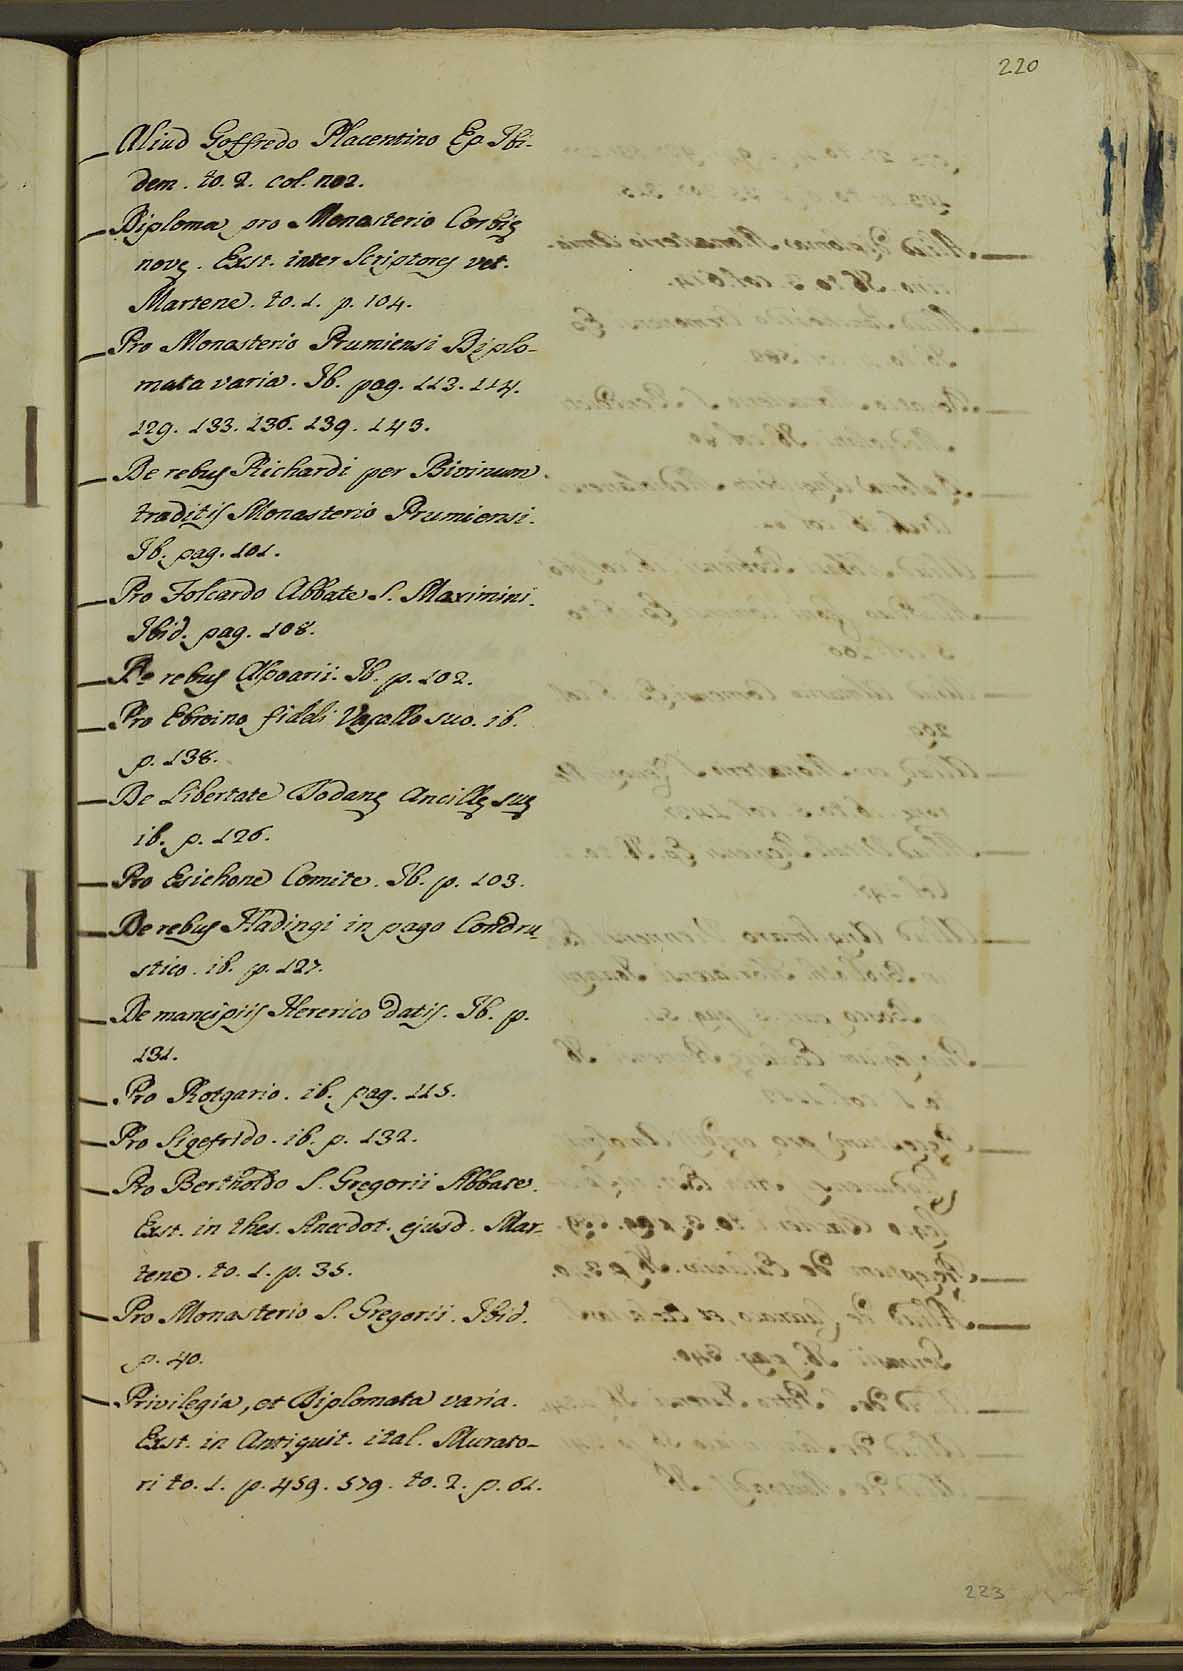 220
Aliud Goffredo Placentino Ep. Ibi-
dem. to. 2. col. 1102.
Diploma pro Monasterio Corbię
novę. Exst. inter Scriptores vet.
Martene. to. 1. p. 104.
Pro Monasterio Prumiensi Diplo-
mata varia. Ib. pag. 113. 114.
129. 133. 136. 139. 143.
De rebus Richardi per Bivinum
traditis Monasterio Prumiensi.
Ib. pag. 101.
Pro Folcardo Abbate S. Maximini.
Ibid. pag. 108.
De rebus Alpoarii. Ib. p. 102.
Pro Ebroino fideli Vasallo suo. ib.
p. 138.
De Libertate Dodanę Ancillę suę
ib. p. 126.
Pro Esichone Comite. Ib. p. 103.
De rebus Hadingi in pago Condru-
stico. ib. p. 127.
De mancipiis Hererico datis. Ib. p.
131.
Pro Rotgario. ib. pag. 115.
Pro Sigefrido. ib. p. 132.
Pro Bertholdo S. Gregorii Abbate.
Exst. in thes. Anecdot. ejusd. Mar-
tene. to. 1. p. 35.
Pro Monasterio S. Gregorii. Ibid.
p. 40.
Privilegia, et Diplomata varia.
Exst. in Antiquit. ital. Murato-
ri to. 1. p. 459. 579. to. 2. p. 61.
223